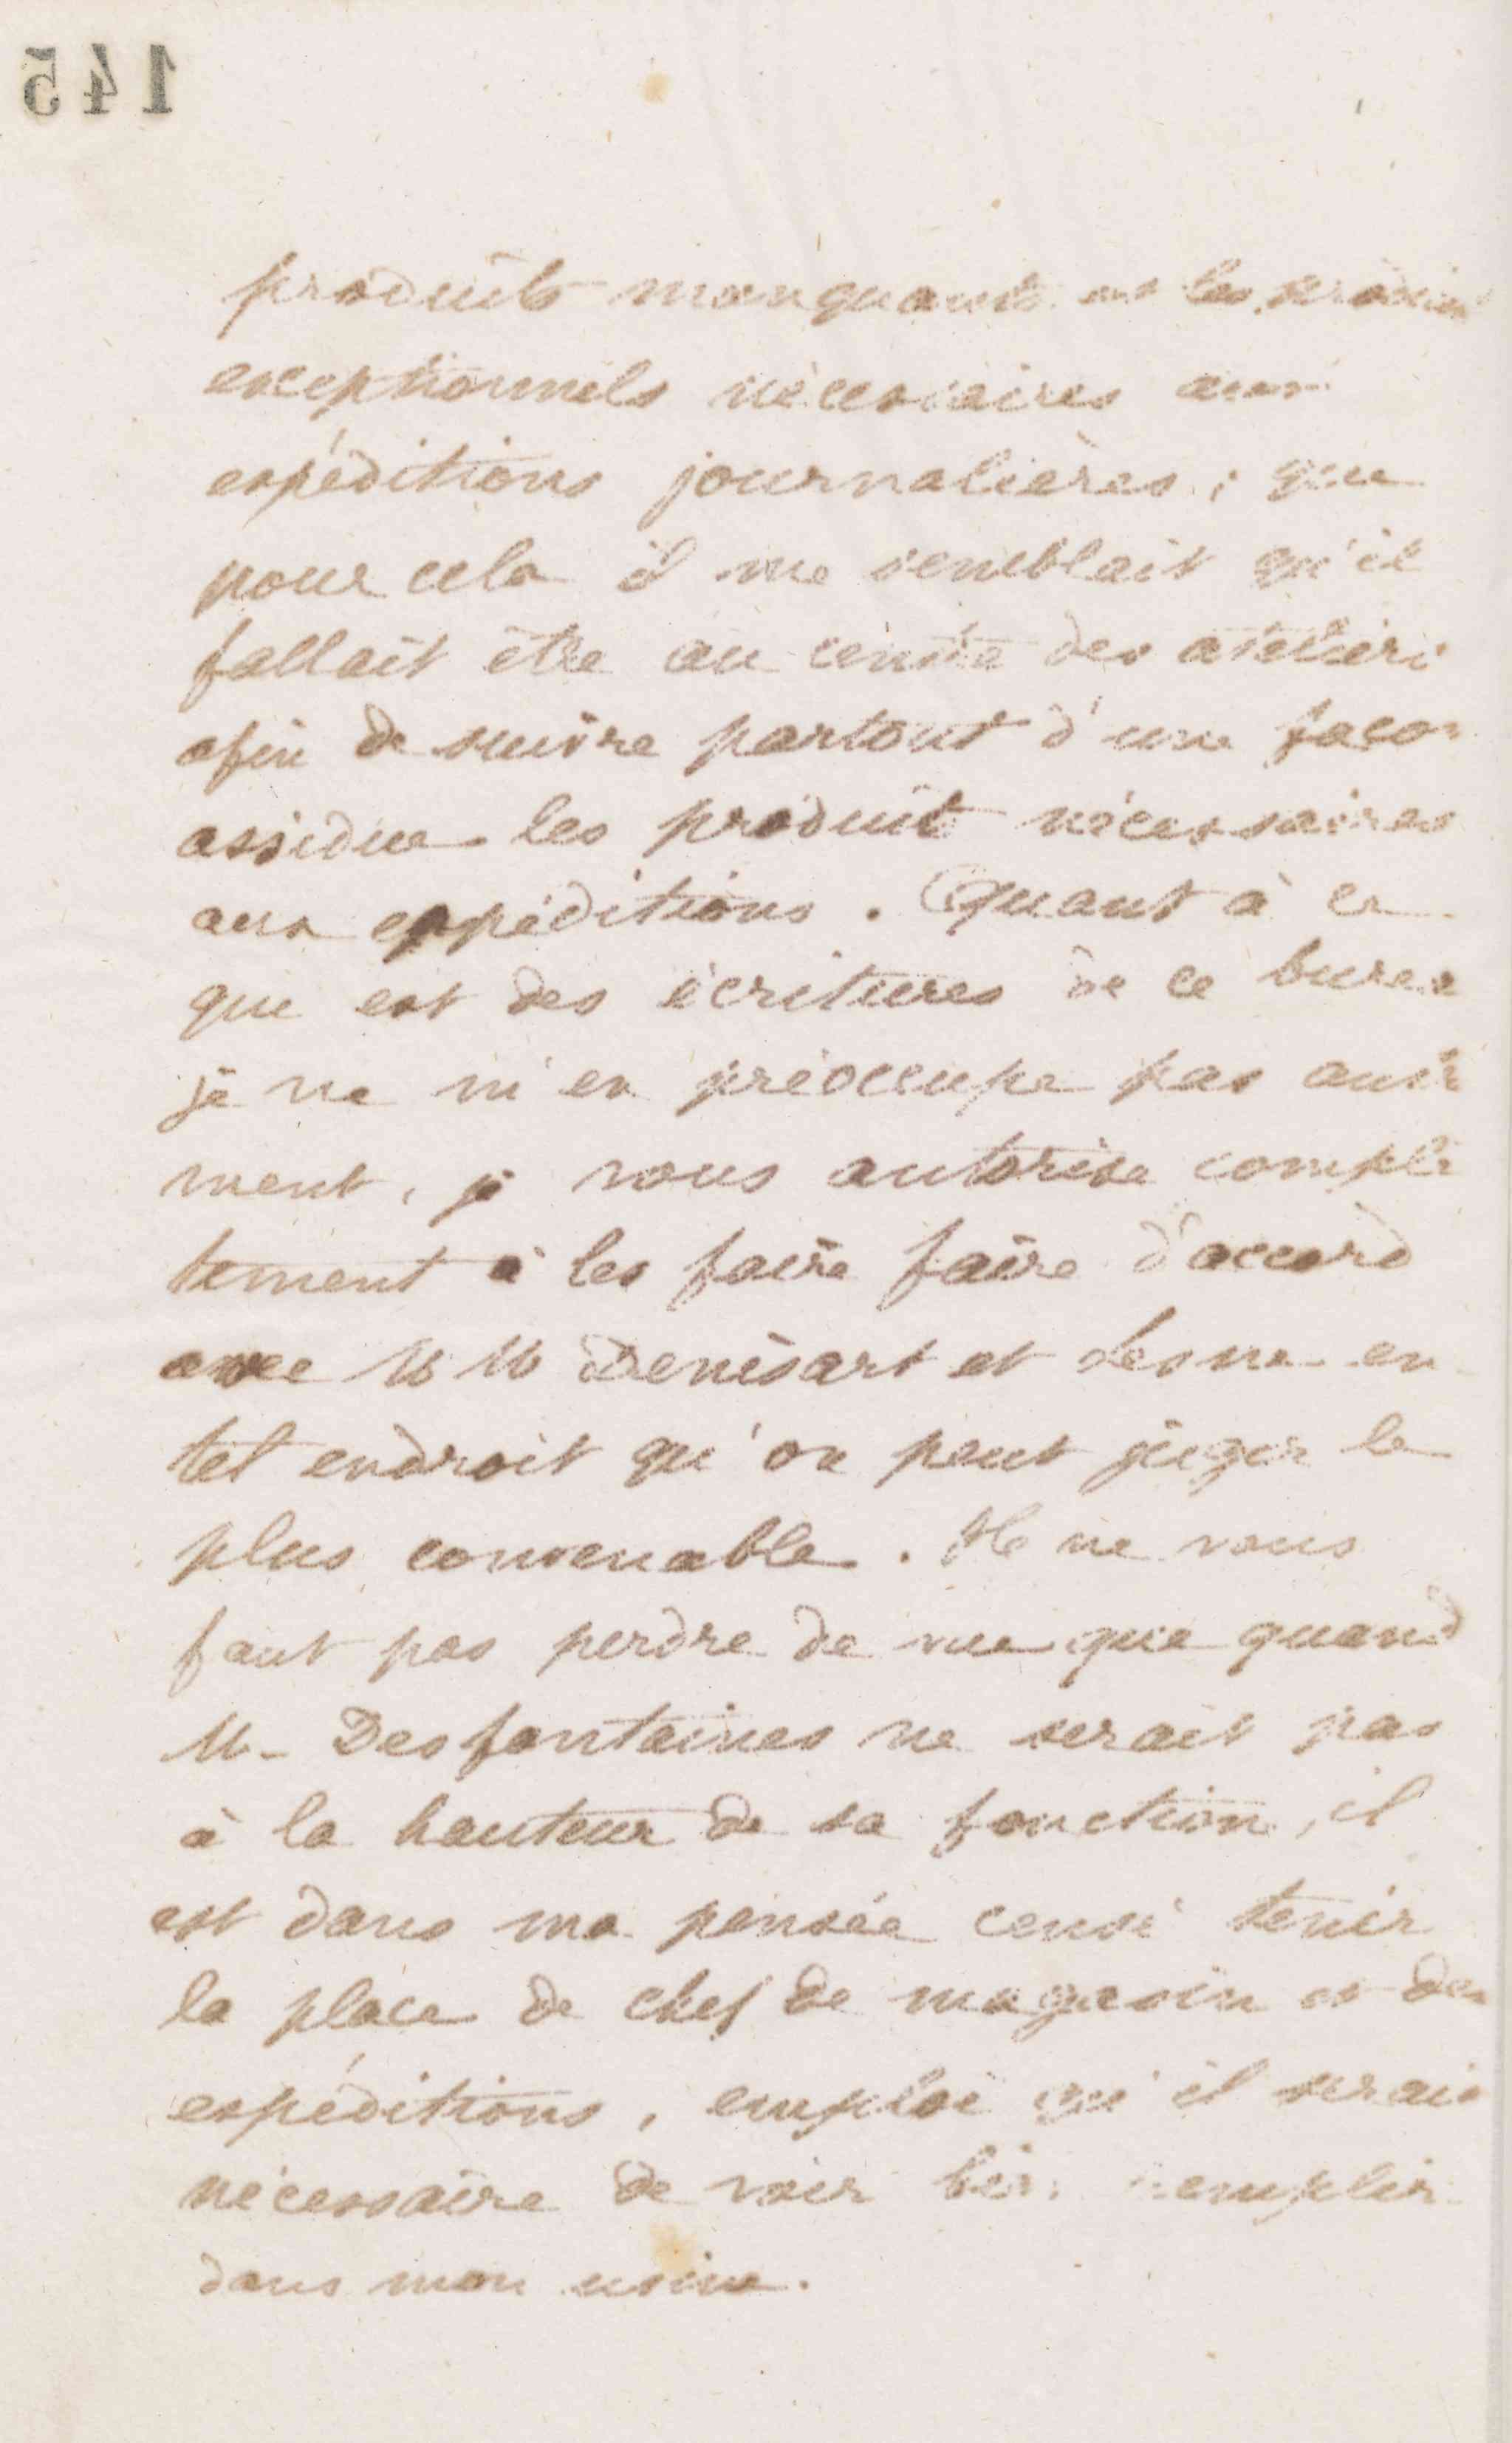 145
produits manquants et les produits
exceptionnels nécessaires aux
expéditions journalières ; que
pour cela il me semblait qu'il
fallait être au centre des ateliers
afin de suivre partout d'une façon
assidue les produit nécessaires
aux expéditions. Quant à ce
qui est des écritures de ce bureau
je ne m'en préoccupe pas autre
ment, je vous autorise complè
tement à les faire faire d'accord
avec MM Denisart et Lesne en
tel endroit qu'on peut juger le
plus convenable. Il ne vous
faut pas perdre de vue que quand
M. Desfontaines ne serait pas
à la hauteur de sa fonction, il
est dans ma pensée censé tenir
la place de chef de magasin et des
expéditions, emploi qu'il serait
nécessaire de voir bien remplir
dans mon usine.